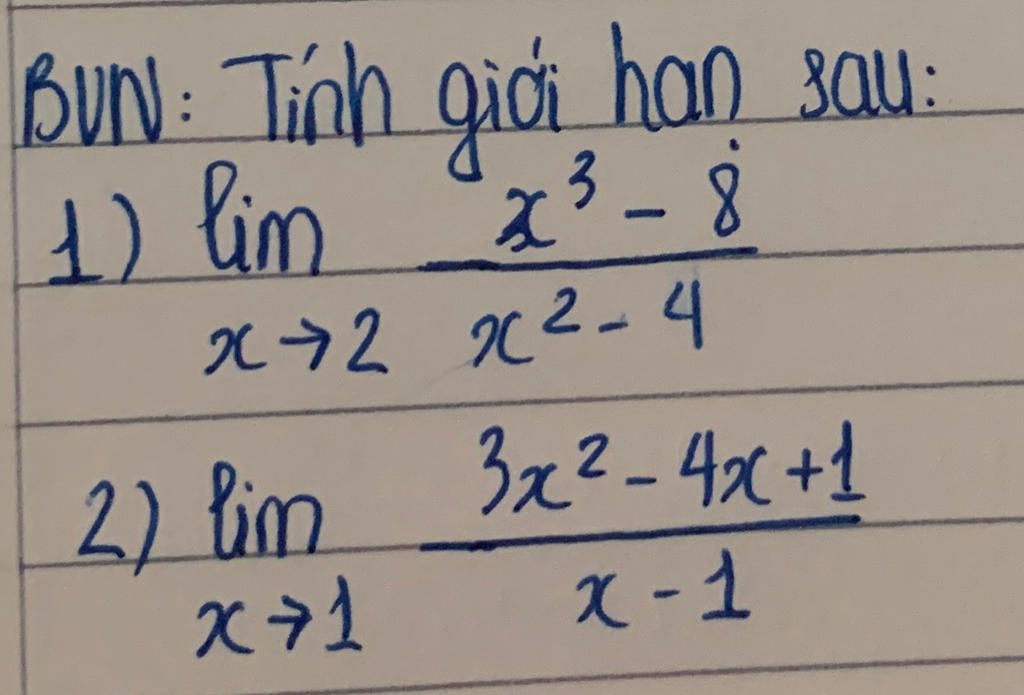 BVN: Tính giới han sau:
1) lim x→2 (x³ - 8)/(x² - 4)
2) lim x→1 (3x² - 4x + 1)/(x - 1)